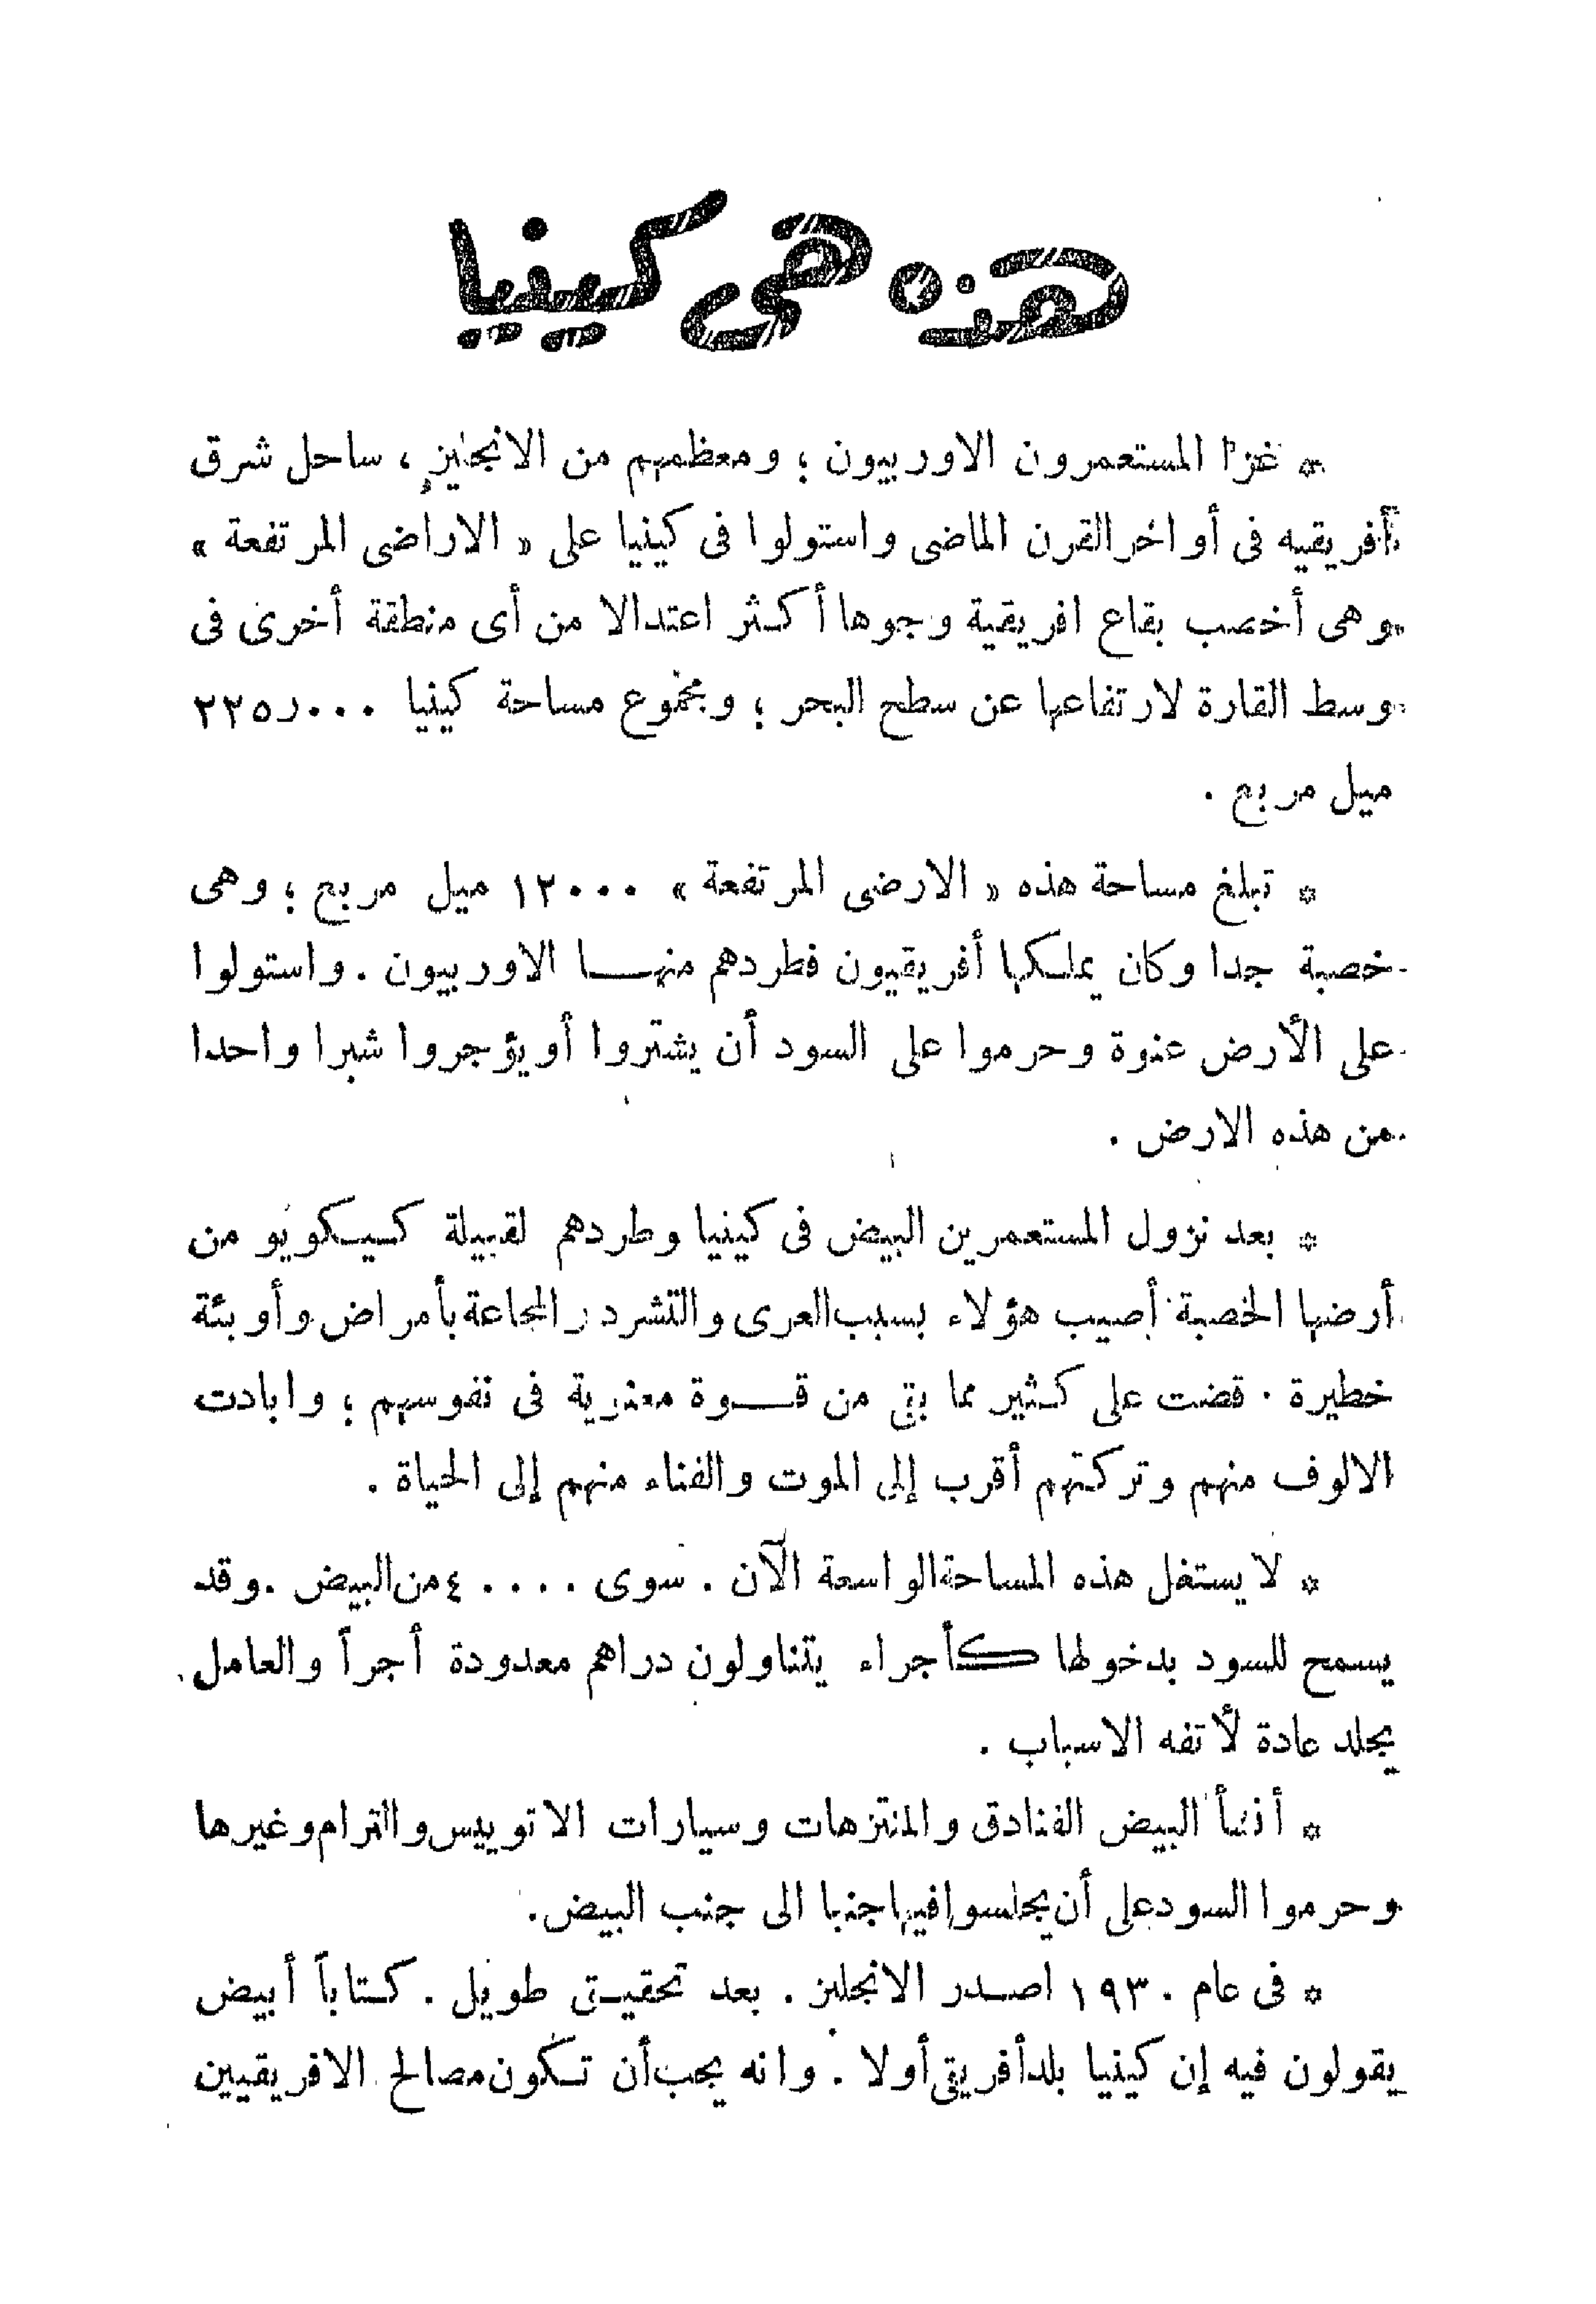 هذه هى كينيا
* غزا المستعمرون الاوربيون ؛ ومعظمهم من الانجليز ، ساحل شرق
أفريقيه فى أواخر القرن الماضى واستولوا فى كينيا على « الاراضى المرتفعة »
وهى أخصب بقاع افريقية وجوها أكثر اعتدالا من أى منطقة أخرى فى
وسط القارة لارتفاعها عن سطح البحر ؛ ومجموع مساحة كينيا ٢٢٥ر٠٠٠
ميل مربع .
* تبلغ مساحة هذه « الارضى المرتفعة » ١٢٠٠٠ ميل مربع ؛ وهى
خصبة جدا وكان يملكها أفريقيون فطردهم منها الاوربيون . واستولوا
على الأرض عنوة وحرموا على السود أن يشتروا أو يؤجروا شبرا واحدا
من هذه الارض .
* بعد نزول المستعمرين البيض فى كينيا وطردهم لقبيلة كيكويو من
أرضها الخصبة أصيب هؤلاء بسبب العرى والتشرد والمجاعة بأمراض وأوبئة
خطيرة . قضت على كثير مما بقى من قوة معنوية فى نفوسهم ؛ وابادت
الالوف منهم وتركتهم أقرب إلى الموت والفناء منهم إلى الحياة .
* لا يستغل هذه المساحة الواسعة الآن . سوى ٤٠٠٠ من البيض . وقد
يسمح للسود بدخولها كأجراء يتناولون دراهم معدودة أجراً والعامل
يجلد عادة لأتفه الاسباب .
* أنشأ البيض الفنادق والمنتزهات وسيارات الاتوبيس والترام وغيرها
وحرموا السود على أن يجلسوا فيها جنبا الى جنب البيض.
* فى عام ١٩٣٠ اصدر الانجليز . بعد تحقيق طويل . كتاباً أبيض
يقولون فيه إن كينيا بلد أفريقى أولا . وانه يجب أن تكون مصالح الافريقيين